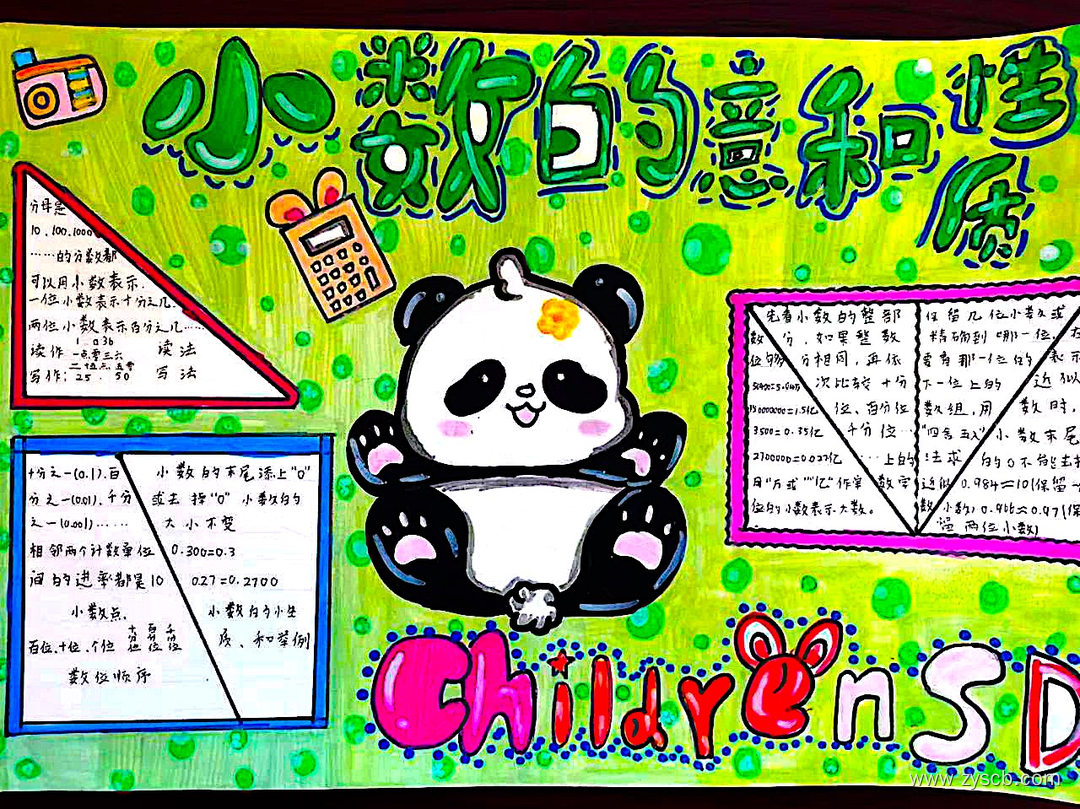 小数的意和性
质
分母是
10,100,1000
……的分数都
可以用小数表示.
一位小数表示十分之几.
两位小数表示百分之几……
读作 一点零三六 读法
写作: 25.50 写法
十分之一(0.1).百
分之一(0.01).千分
之一(0.001)……
相邻两个计数单位
间的进率都是10
小数点.
百位、十位、个位 十分位 百分位 千分位
数位顺序
小数的末尾添上"0"
或去掉"0" 小数的
大小不变
0.300=0.3
0.27=0.2700
小数的小性
质、和举例
先看小数的整部
数分,如果整数
位 分相同,再依
次比较十分
位、百分位
千分位…
…上的
数字
=1.5亿
3500=0.35亿
2700000=0.027亿
用"万或""亿"作单
位的小数表示大数。
保留几位小数或
精确到哪一位,
要看那一位的
下一位上的
数组,用
"四舍五入"
法求
近似
数
表示
近似
数时,
小数末尾
的0不能去掉
0.984≈10(保留一
小数)
0.97(保
留两位小数)
ChildrenSD
www.zyscb.com